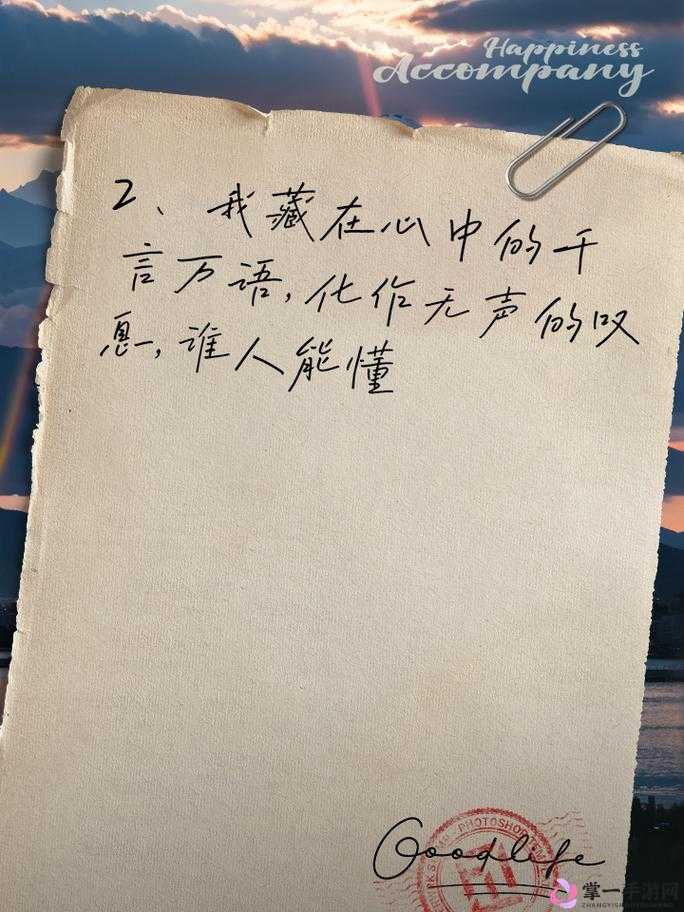 Happiness
Accompany
2、我藏在心中的千
言万语,化作无声的叹
息,谁人能懂
PHOTOSHOP
Goodlife
掌一手游网